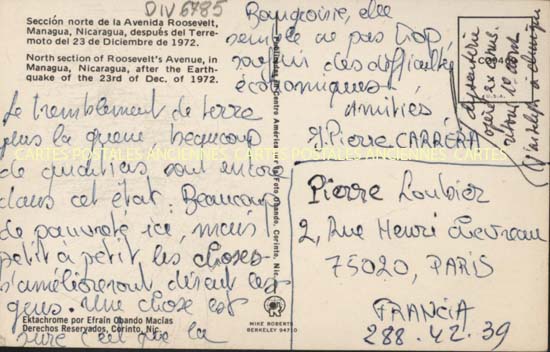 DIV 6785
Sección norte de la Avenida Roosevelt,
Managua, Nicaragua, después del Terre-
moto del 23 de Diciembre de 1972.
North section of Roosevelt's Avenue, in
Managua, Nicaragua, after the Earth-
quake of the 23rd of Dec. of 1972.
Le tremblement de terre
plus la guerre beaucoup
de quartiers sont encore
dans cet état. Beaucoup
de pauvreté ici, mais
petit à petit, les choses
s'amélioreront, disent les
gens. Une chose est
sûre c'est que la
Bourgeoisie, elle
semble ne pas trop
souffrir des difficultés
économiques.
Amitiés
J. Pierre CARRÉRA
Pierre Loubier
2, Rue Henri Chevreau
75020, PARIS
FRANCIA
288.42.39
CARTES POSTALES ANCIENNES CARTES POSTALES ANCIENNES CARTES
Ektachrome por Efraín Obando Macías
Derechos Reservados, Corinto, Nic.
MIKE ROBERTS
BERKELEY 94710